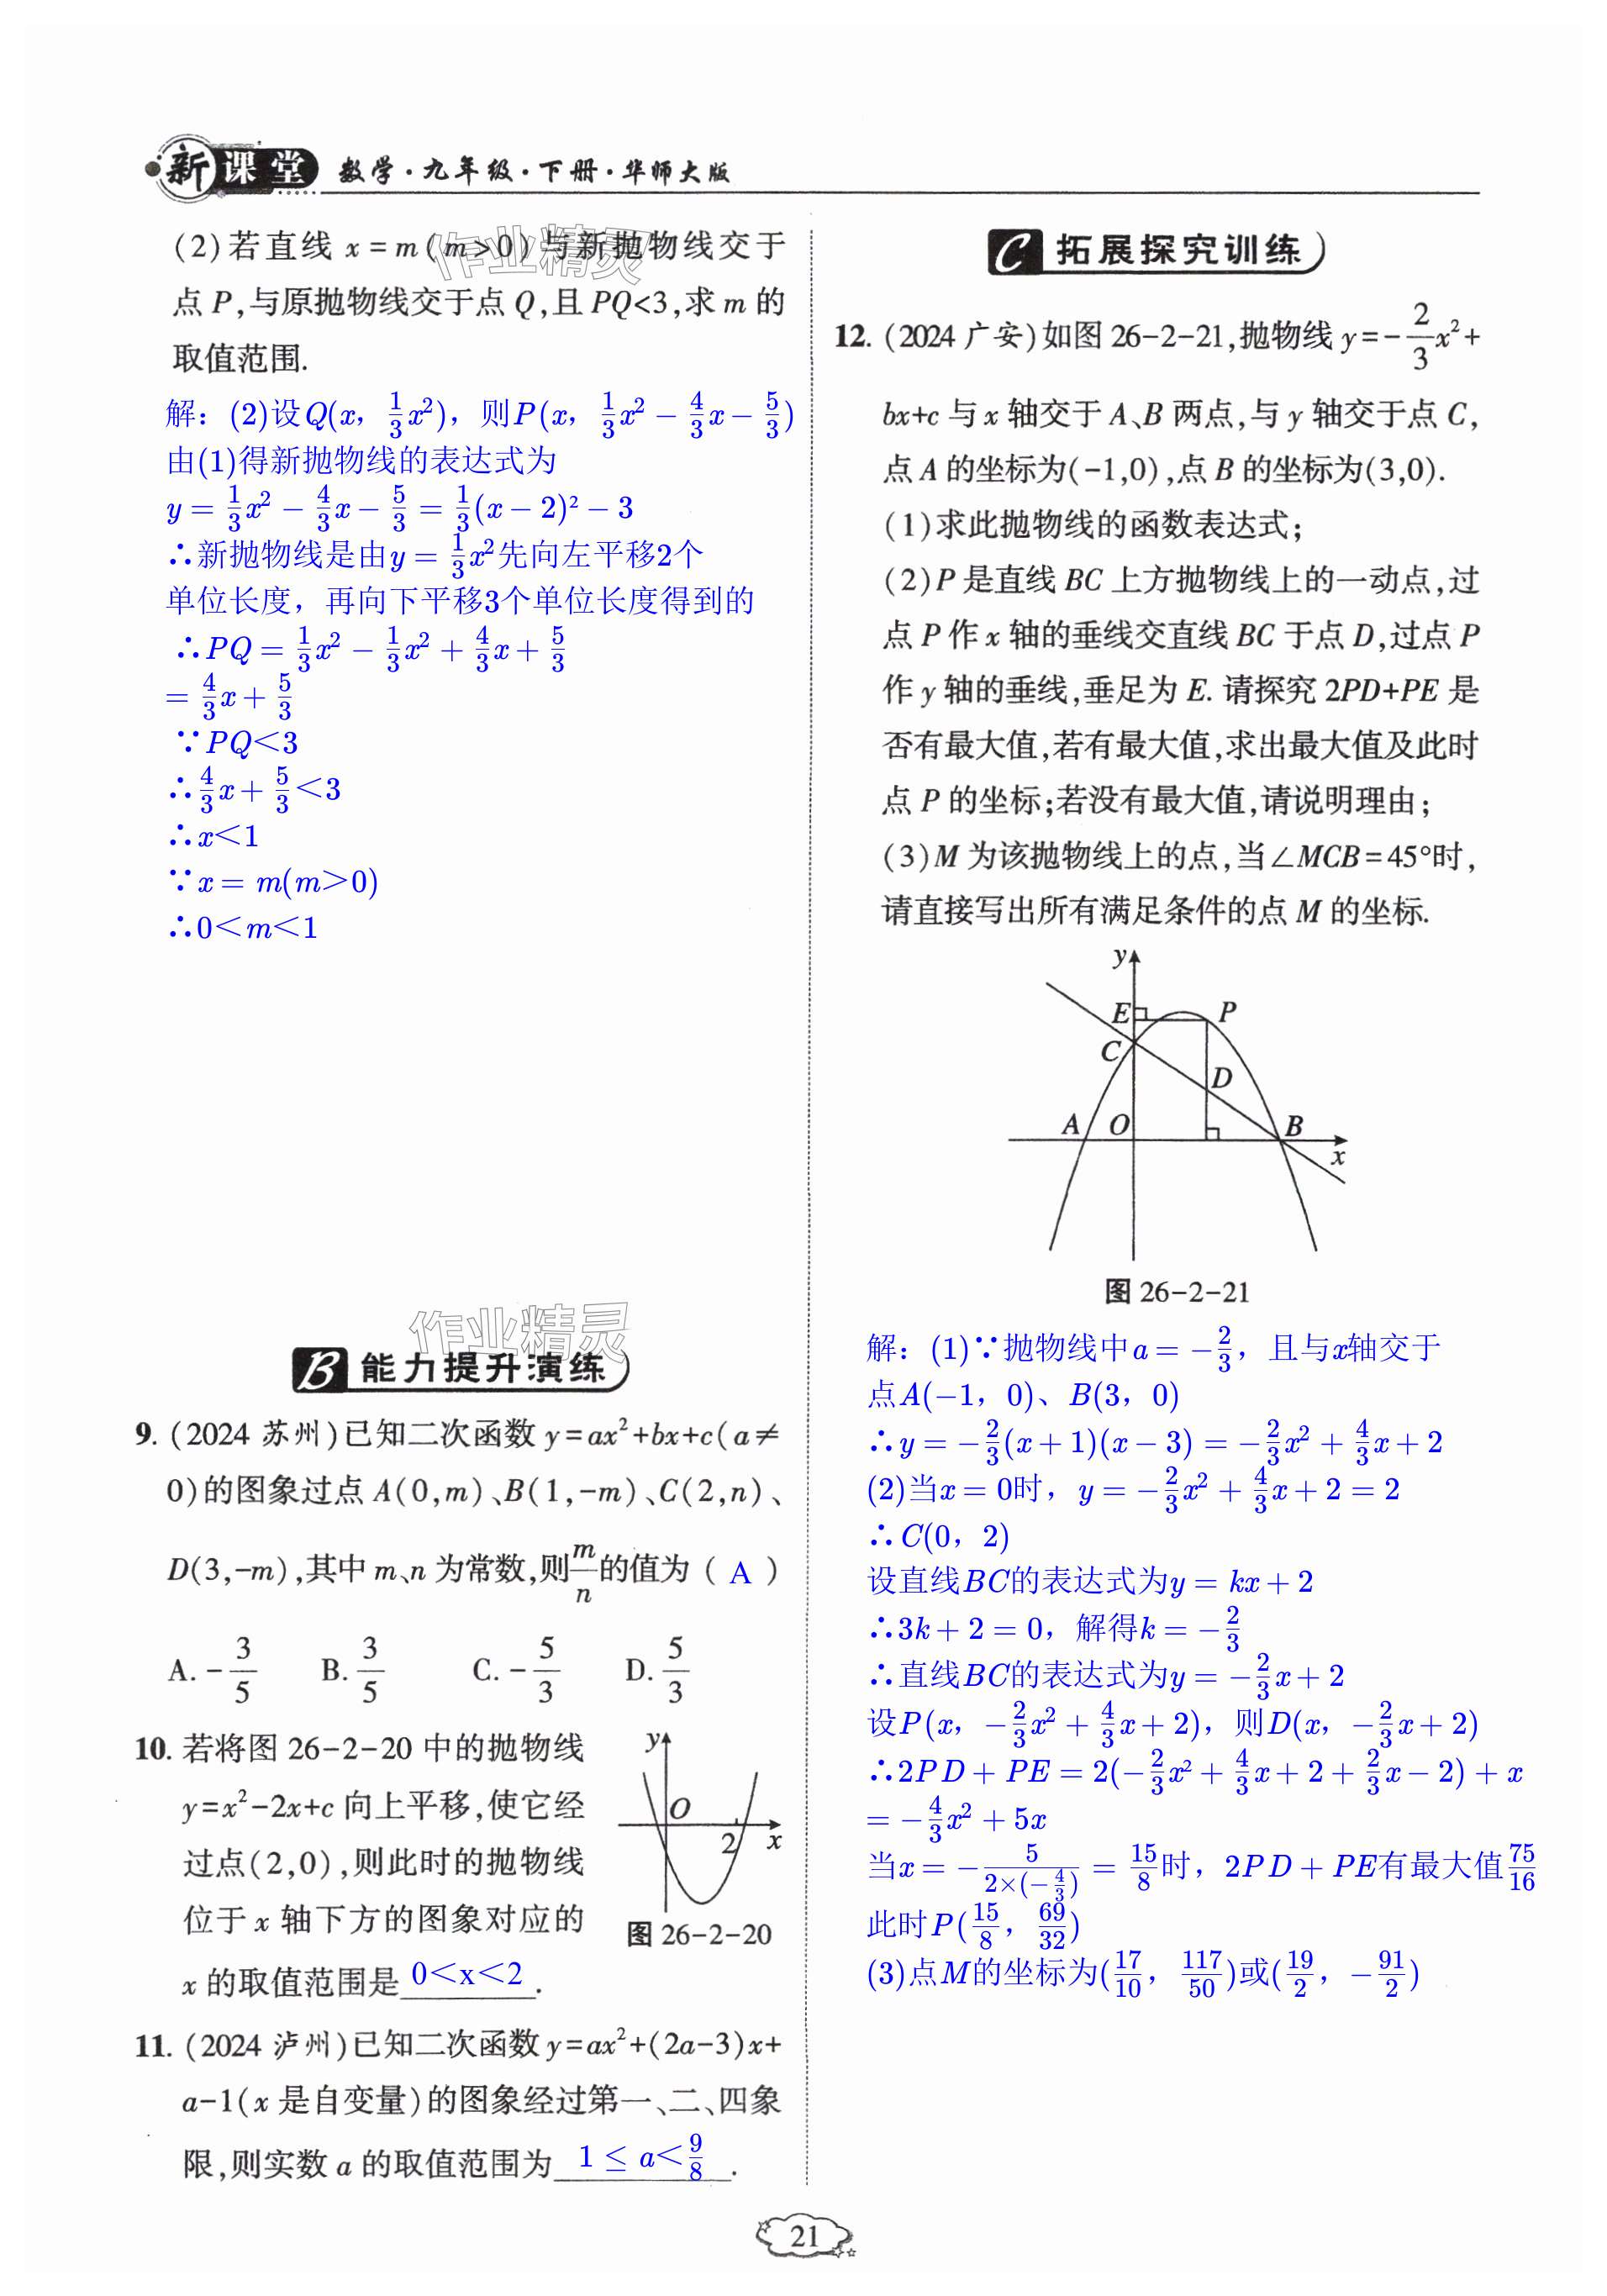 新课堂 数学·九年级·下册·华师大版
(2)若直线 x=m(m>0)与新抛物线交于
点 P,与原抛物线交于点 Q,且 PQ<3,求 m 的
取值范围.
作业精灵
解：(2)设Q(x，1/3x²)，则P(x，1/3x²－4/3x－5/3)
由(1)得新抛物线的表达式为
y＝1/3x²－4/3x－5/3＝1/3(x－2)²－3
∴新抛物线是由y＝1/3x²先向左平移2个
单位长度，再向下平移3个单位长度得到的
∴PQ＝1/3x²－1/3x²＋4/3x＋5/3
＝4/3x＋5/3
∵PQ＜3
∴4/3x＋5/3＜3
∴x＜1
∵x＝m(m＞0)
∴0＜m＜1
作业精灵
B 能力提升演练
9. (2024 苏州)已知二次函数 y=ax²+bx+c(a≠
0)的图象过点 A(0,m)、B(1,-m)、C(2,n)、
D(3,-m),其中 m、n 为常数,则m/n的值为( A )
A. -3/5 B. 3/5 C. -5/3 D. 5/3
10. 若将图 26-2-20 中的抛物线
y=x²-2x+c 向上平移,使它经
过点(2,0),则此时的抛物线
位于 x 轴下方的图象对应的
x 的取值范围是 0＜x＜2 .
y
O
2
x
图 26-2-20
11. (2024 泸州)已知二次函数 y=ax²+(2a-3)x+
a-1(x 是自变量)的图象经过第一、二、四象
限,则实数 a 的取值范围为 1≤a＜9/8 .
C 拓展探究训练
12. (2024 广安)如图 26-2-21,抛物线 y=-2/3x²+
bx+c 与 x 轴交于 A、B 两点,与 y 轴交于点 C,
点 A 的坐标为(-1,0),点 B 的坐标为(3,0).
(1)求此抛物线的函数表达式;
(2)P 是直线 BC 上方抛物线上的一动点,过
点 P 作 x 轴的垂线交直线 BC 于点 D,过点 P
作 y 轴的垂线,垂足为 E. 请探究 2PD+PE 是
否有最大值,若有最大值,求出最大值及此时
点 P 的坐标;若没有最大值,请说明理由;
(3)M 为该抛物线上的点,当∠MCB=45°时,
请直接写出所有满足条件的点 M 的坐标.
y
E
P
C
D
A
O
B
x
图 26-2-21
解：(1)∵抛物线中a＝－2/3，且与x轴交于
点A(－1，0)、B(3，0)
∴y＝－2/3(x＋1)(x－3)＝－2/3x²＋4/3x＋2
(2)当x＝0时，y＝－2/3x²＋4/3x＋2＝2
∴C(0，2)
设直线BC的表达式为y＝kx＋2
∴3k＋2＝0，解得k＝－2/3
∴直线BC的表达式为y＝－2/3x＋2
设P(x，－2/3x²＋4/3x＋2)，则D(x，－2/3x＋2)
∴2PD＋PE＝2(－2/3x²＋4/3x＋2＋2/3x－2)＋x
＝－4/3x²＋5x
当x＝－5/(2×(－4/3))＝15/8时，2PD＋PE有最大值75/16
此时P(15/8，69/32)
(3)点M的坐标为(17/10，117/50)或(19/2，－91/2)
21